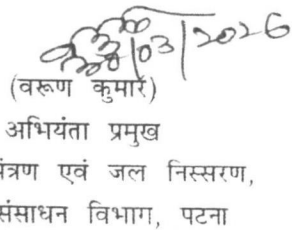 03/2026
(वरूण कुमार)
अभियंता प्रमुख
एवं जल निस्सरण,
विभाग, पटना